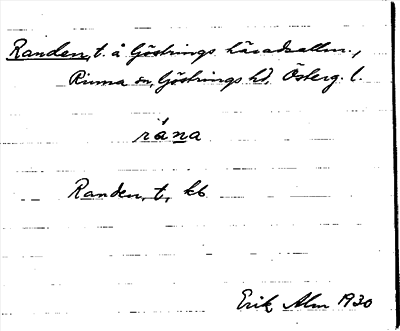 Randen, t. å Göstrings häradsallm.,
Rinna sn, Göstrings hd, Österg. l.
råna
Randen, t, kb
Erik Alm 1930